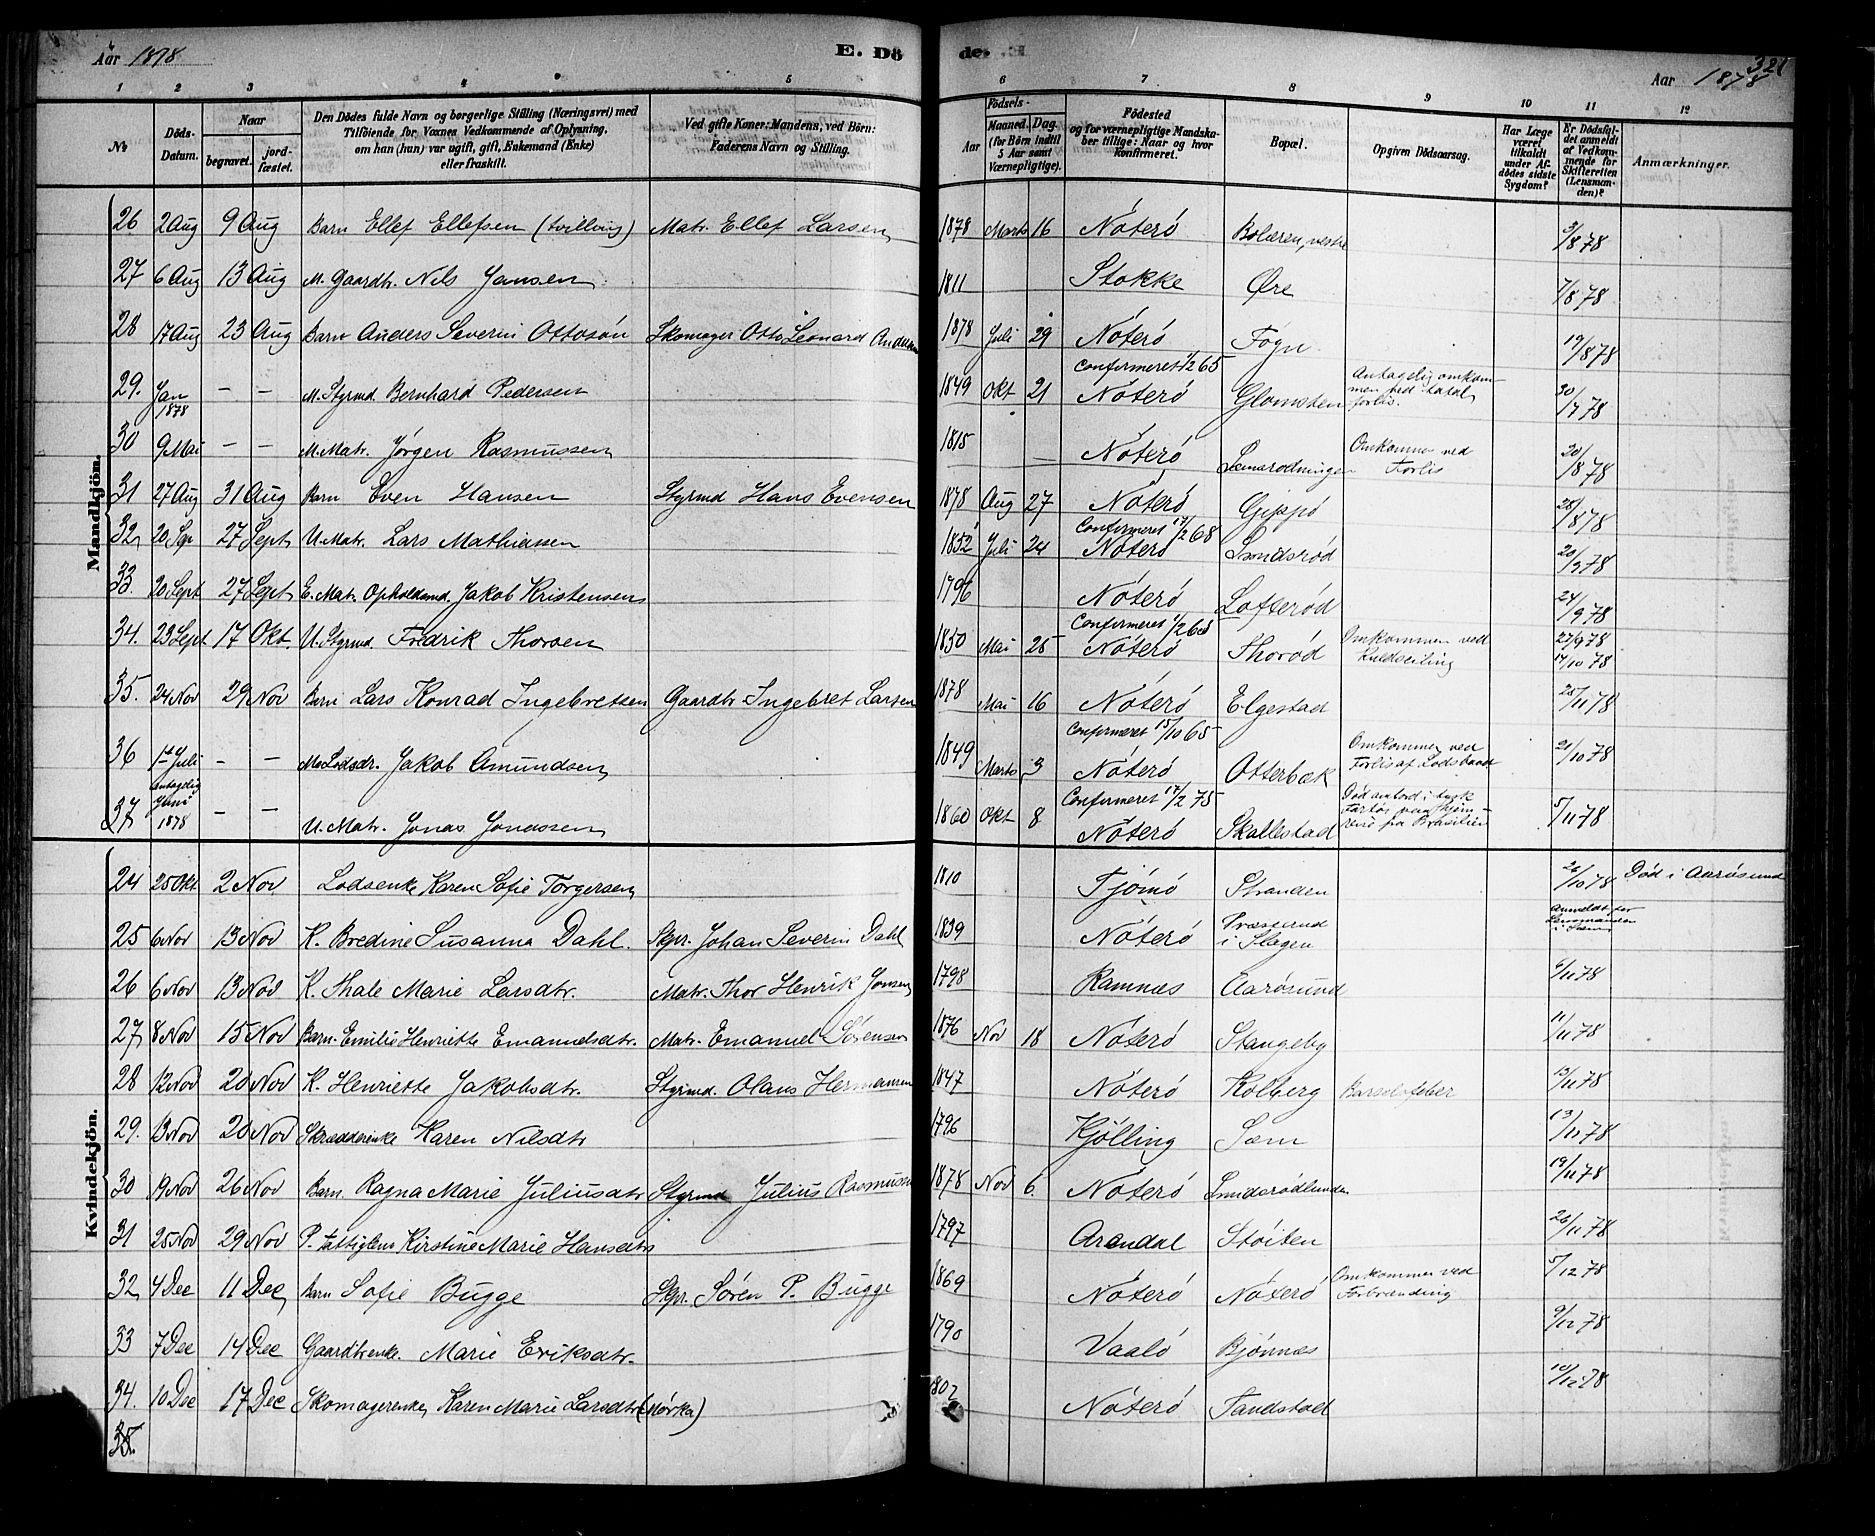 Aar 1878 E. Dö de. Aar 1878 321
1 2 3 4 5 6 7 8 9 10 11 12
No Döds-Datum. Naar begravet. jord-fæstet. Den Dödes fulde Navn og borgerlige Stilling (Næringsvei) med Tilföiende for Voxnes Vedkommende af Oplysning, om han (hun) var ugift, gift, Enkemand (Enke) eller fraskilt. Ved gifte Koner: Mandens, ved Börn: Faderens Navn og Stilling. Födsels- Aar Maaned. Dag. (for Börn indtil 5 Aar samt Værnepligtige). Födested og for værnepligtige Mandska-ber tillige: Naar og hvor Konfirmeret. Bopæl. Opgiven Dödsaarsag. Har Læge været tilkaldt under Af-dödes sidste Sygdom? Er Dödsfal-det anmeldt af Vedkom-mende for Skifteretten (Lensman-den)? Anmærkninger.
Mandkjön.
26 2 Aug 9 Aug Barn Ellef Ellefsen (tvilling) Matr. Ellef Larsen 1878 Marts 16 Nöterö Bolæren, vestre 3/8 78
27 6 Aug 13 Aug M. Gaardbr. Nils Jansen 1811 Stokke Øre 7/8 78
28 17 Aug 23 Aug Barn Anders Severin Ottosön Skomager Otto Leonard Andersen 1878 Juli 29 Nöterö Föyn 19/8 78
29. Jan 1878 – – M. Styrmd Bernhard Pedersen 1849 Okt 21 Confirmeret 1/2 65 Nöterö Glomsten Antagelig omkommen ved total forlis. 30/7 78
30 9 Mai – – M. Matr. Jörgen Rasmussen 1815 – Nöterö Omkommen ved Forlis 20/8 78
31 27 Aug 31 Aug Barn Even Hansen Styrmd Hans Evensen 1878 Aug 27 Nöterö Gipö 28/8 78
32 20 Sep 27 Sept U. Matr. Lars Mathiassen 1852 Juli 24 Confirmeret 17/2 68 Nöterö Smidsröd 20/9 78
33. 20 Sept 27 Sept E. Matr. Opholdsmd Jakob Kristensen 1796 Nöterö Lofteröd 24/9 78
34. 23 Sept 17 Okt. U. Styrmd. Fredrik Thorsen 1850 Mai 25 Confirmeret 1/2 66 Nöterö Thoröd Omkommen ved Kuldseiling 27/9 78 17/10 78
35. 24 Nov 29 Nov Barn Lars Konrad Ingebretsen Gaardbr. Ingebret Larsen 1878 Mai 16 Nöterö Elgestad 25/11 78
36 1st Juli – – M. Lodsdr. Jakob Amundsen 1849 Marts 3 Confirmeret 15/10 65 Nöterö Otterbæk Omkommen ved Forlis af Lodsbaad 21/10 78
37 antagelig Juni 1878 – – U. Matr. Jonas Jonassen 1860 Okt 8 Confirmeret 17/2 75 Nöterö Skallestad Död ombord i tysk Fartöi paa Hjemreise fra Brasilien 5/11 78
Kvindekjön.
24 25 Okt 2 Nov Lodsenke Karen Sofie Torgersen 1810 Tjömö Stranden 26/10 78 Död i Aarösund
25 6 Nov 13 Nov K. Bredine Susanna Dahl. Skpr. Johan Severin Dahl 1839 Nöterö Præsterud i Slagen Anmeldt for Lensmanden i Sæm
26 6 Nov 13 Nov K. Thale Marie Larsdtr. Matr. Thor Henrik Jonsen 1798 Ramnæs Aarösund 6/11 78
27 8 Nov 15 Nov Barn Emilie Henriette Emanuelsdtr. Matr. Emanuel Sörensen 1876 Nov 18 Nöterö Stangeby 11/11 78
28 12 Nov 20 Nov K. Henriette Jakobsdtr. Styrmd. Olaus Hermansen 1847 Nöterö Kolberg Barselsfeber 13/11 78
29. 13 Nov 20 Nov Skrædderenke Karen Nilsdtr 1796 Kjölling Sæm 13/11 78
30 19 Nov 26 Nov Barn Ragna Marie Juliusdtr Styrmd Julius Rasmussen 1878 Nov 6. Nöterö Smidsrödlunden 19/11 78
31 25 Nov 29 Nov P. fattiglem Kirstine Marie Hansdtr 1797 Arendal Stöiten 26/11 78
32 4 Dec 11 Dec Barn Sofie Bugge Skpr. Sören P. Bugge 1869 Nöterö Nöterö Omkommen ved Forbrænding 5/12 78
33 7 Dec 14 Dec Gaardbrenke. Marie Eriksdtr. 1790 Vaalö Bjönnæs 9/12 78
34. 10 Dec 17 Dec Skomagerenke Karen Marie Larsdtr (Mörka) 1802 Nöterö Tandstad 10/12 78
35.